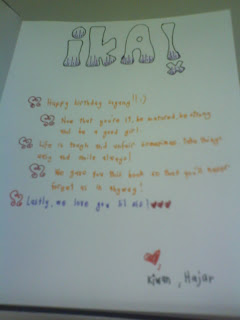 iKA!
Happy birthday syeng!! :)
Now that you're 17, be matured, be strong
and be a good girl.
Life is tough and unfair sometimes. Take things
easy and smile always!
We gave you this book so that you'll never
forget us is anyway!
Lastly, we love you
Kiwan, Hajar